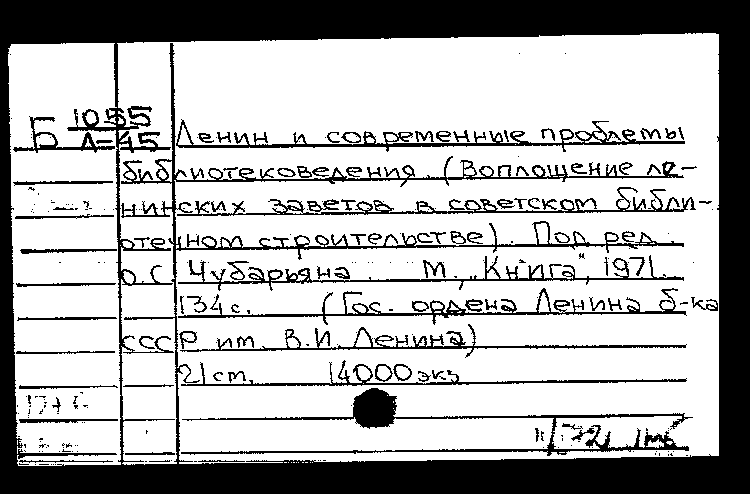 Б 1055
Л=45
Ленин и современные проблемы
библиотековедения. (Воплощение ле-
нинских заветов в советском библи-
отечном строительстве). Под ред.
О.С. Чубарьяна. М., "Книга", 1971.
134 с. (Гос. ордена Ленина б-ка
СССР им. В.И. Ленина)
21 см. 14000 экз